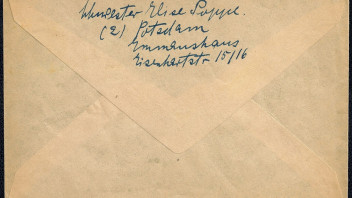 Schwester Elise Poppe.
(2) Potsdam
Emmaushaus
Eisenhartstr 15/16